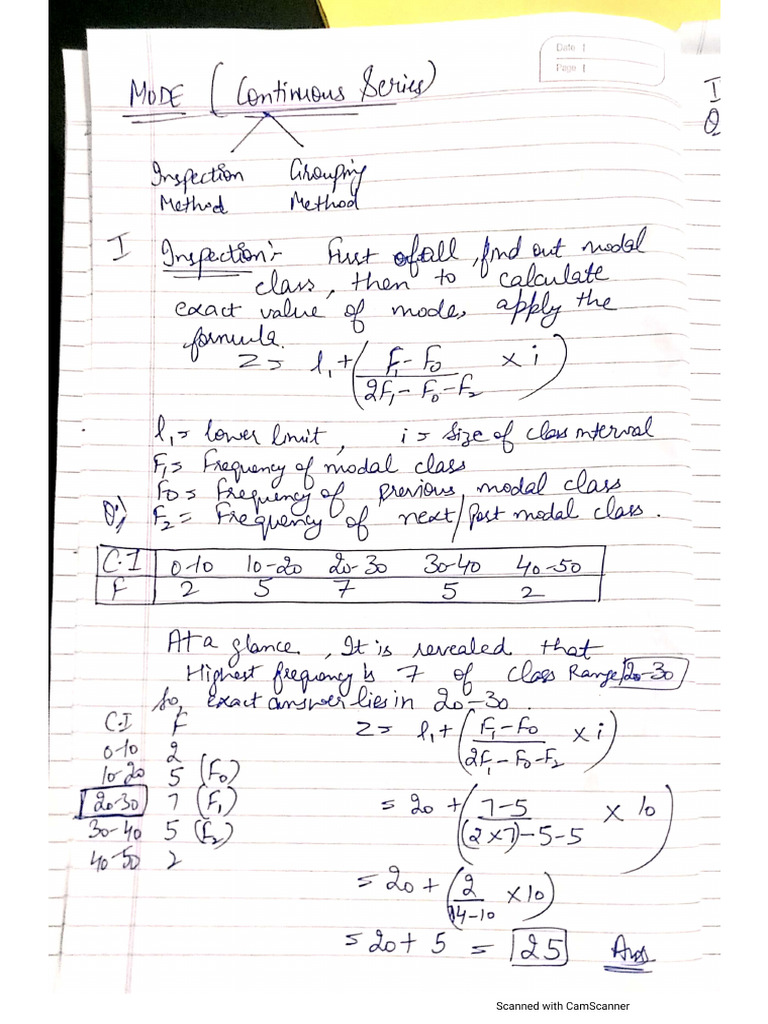 Date
Page
MODE (Continuous Series)
I
Q
Inspection Grouping
Method Method
I Inspection:- First of all, find out modal
class, then to calculate
exact value of mode, apply the
formula.
Z = l₁ + (F₁ - F₀ / 2F₁ - F₀ - F₂ × i)
l₁ = lower limit, i = size of class interval
F₁ = Frequency of modal class
F₀ = Frequency of previous modal class
Q:) F₂ = Frequency of next/post modal class.
C.I 0-10 10-20 20-30 30-40 40-50
F 2 5 7 5 2
At a glance, It is revealed that
Highest frequency is 7 of class Range 20-30
So, exact answer lies in 20-30.
C.I F
0-10 2
10-20 5 (F₀)
20-30 7 (F₁)
30-40 5 (F₂)
40-50 2
Z = l₁ + (F₁ - F₀ / 2F₁ - F₀ - F₂ × i)
= 20 + (7-5 / (2×7)-5-5 × 10)
= 20 + (2 / 14-10 × 10)
= 20 + 5 = 25 Ans
Scanned with CamScanner